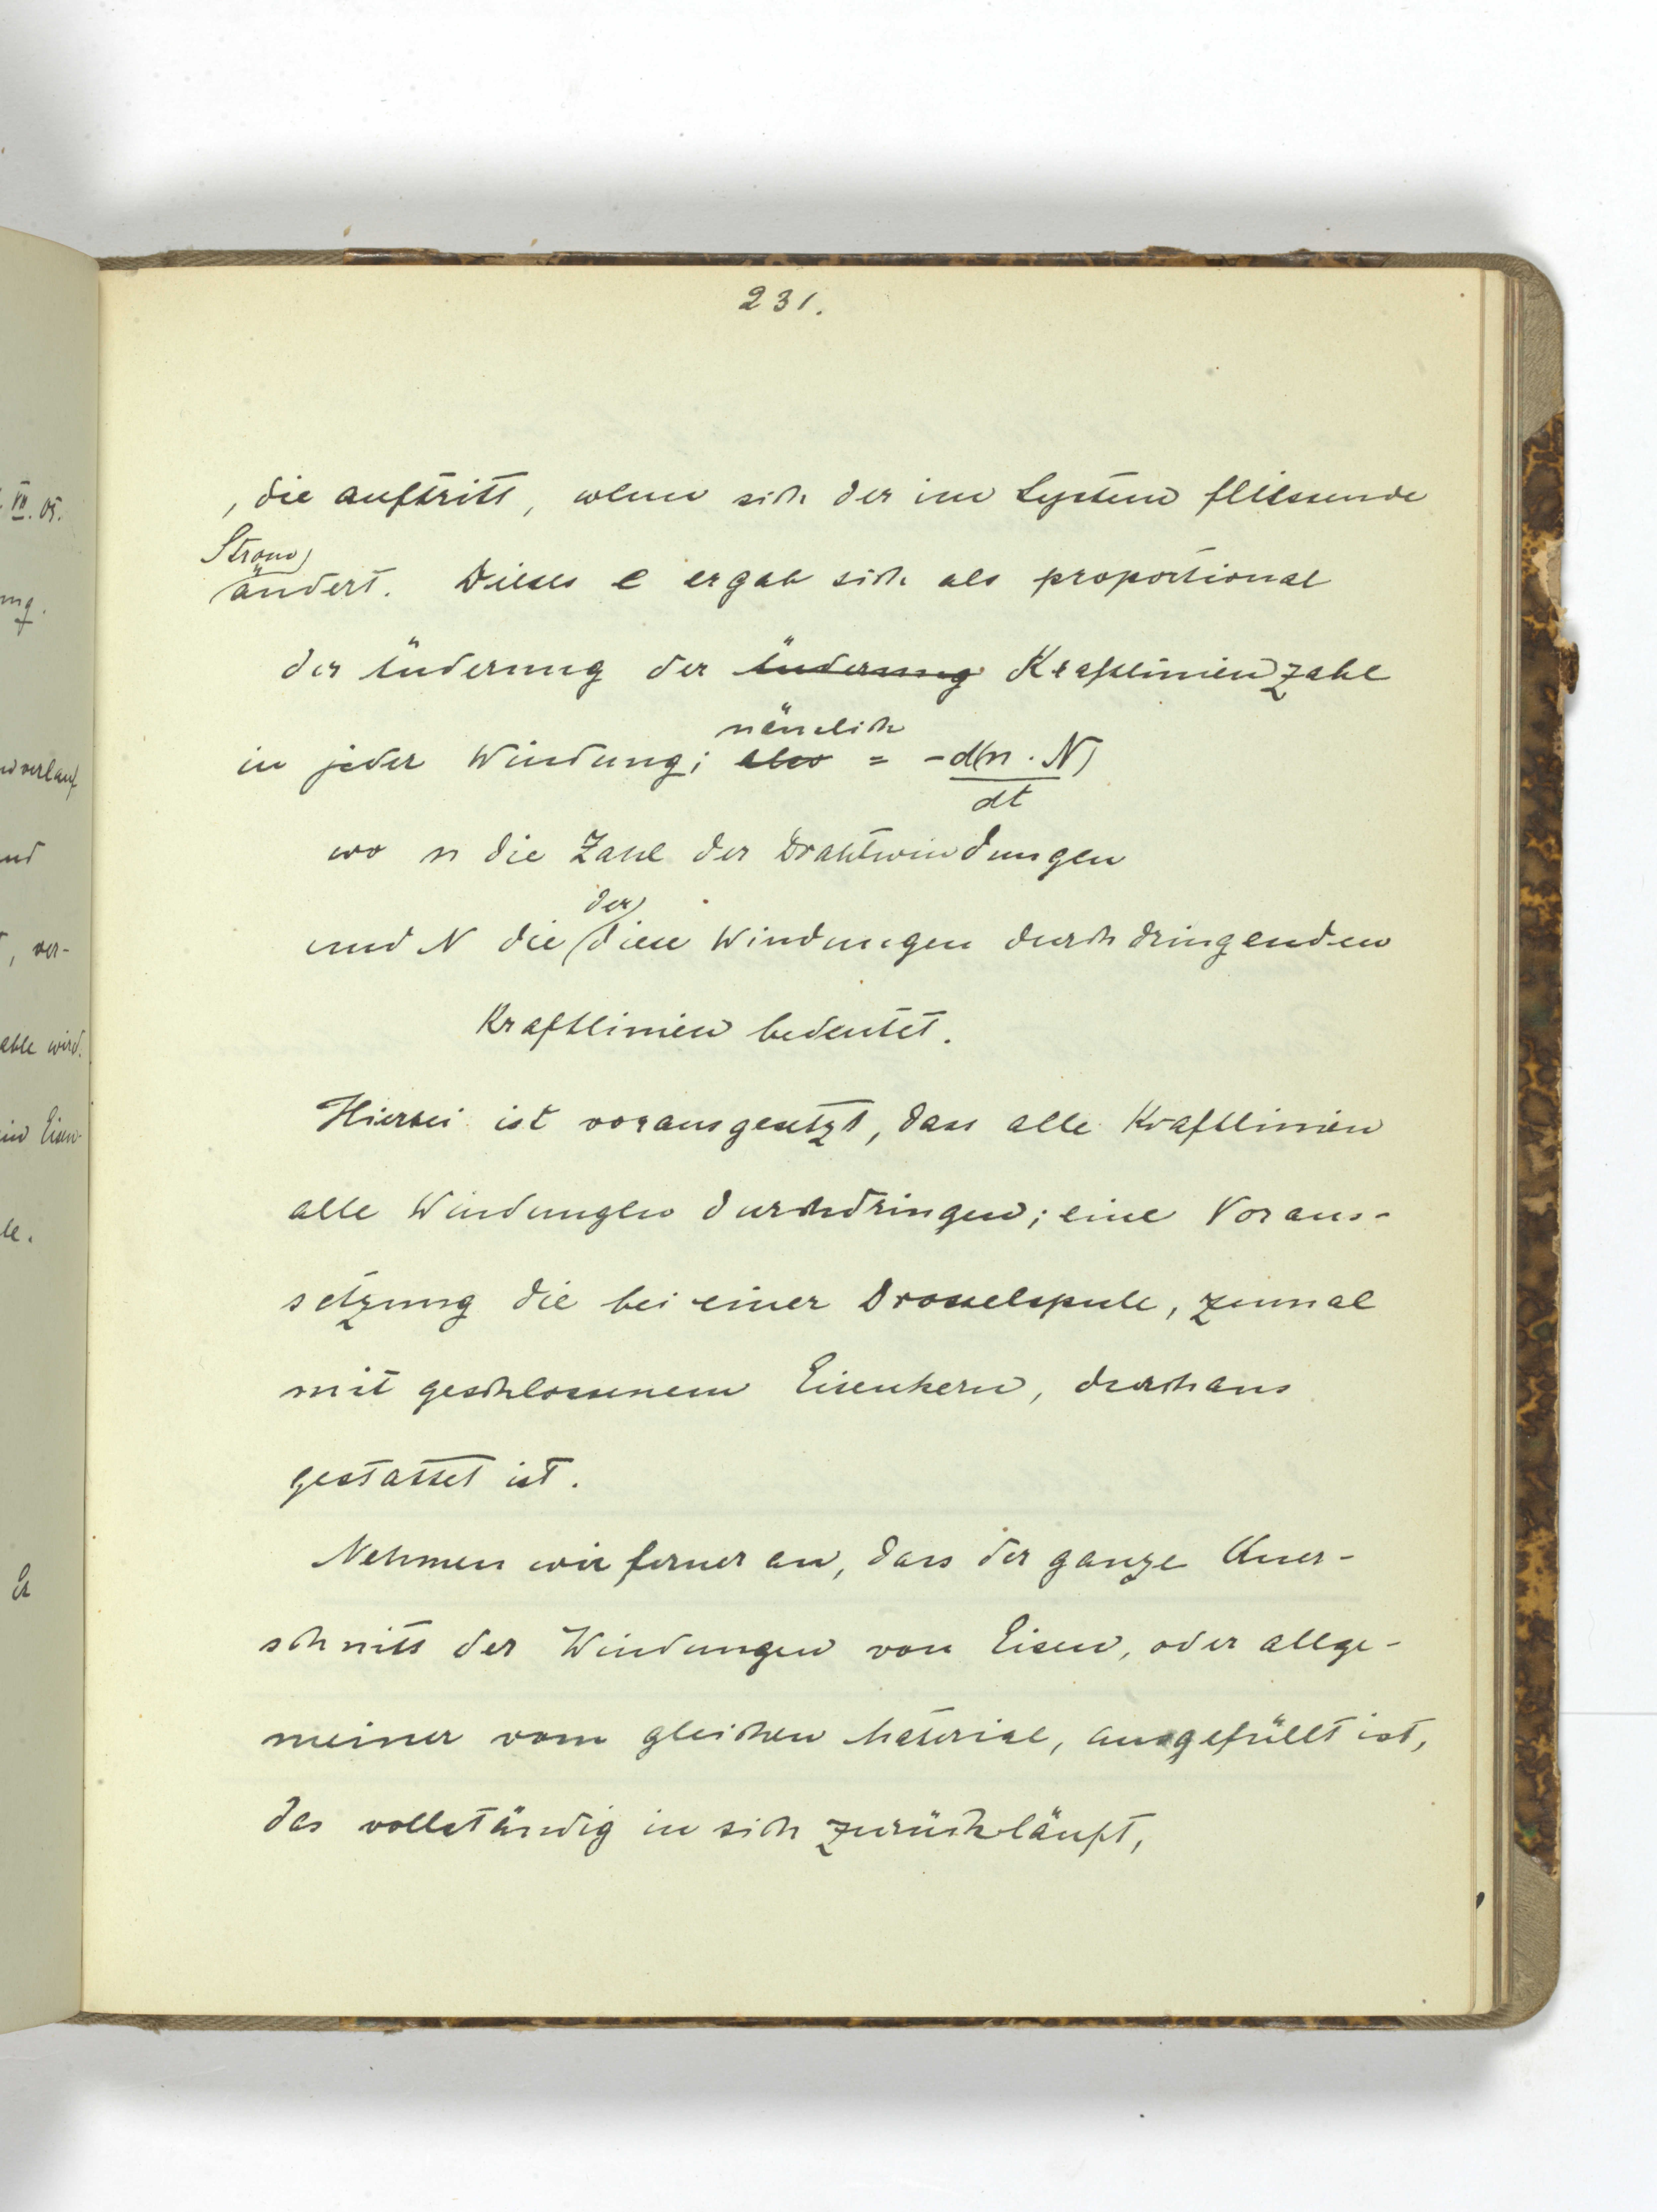 231.
, die auftritt, wenn sich der im System fliessende
Strom
ändert. Dieses e ergab sich als proportional
der Änderung der Änderung Kraftlinienzahl
nämlich
in jeder Windung; also = - d(n · N)
dt
wo n die Zahl der Drahtwindungen
der
und N die diese Windungen durchdringenden
Kraftlinien bedeutet.
Hierbei ist vorausgesetzt, dass alle Kraftlinien
alle Windungen durchdringen; eine Voraus-
setzung die bei einer Drosselspule, zumal
mit geschlossenem Eisenkern, durchaus
gestattet ist.
Nehmen wir ferner an, dass der ganze Quer-
schnitt der Windungen von Eisen, oder allge-
meiner vom gleichen Material, ausgefüllt ist,
das vollständig in sich zurückläuft,
VII. 05.
ng.
verlauf
nd
, ver-
wird.
Eisen-
le.
Er